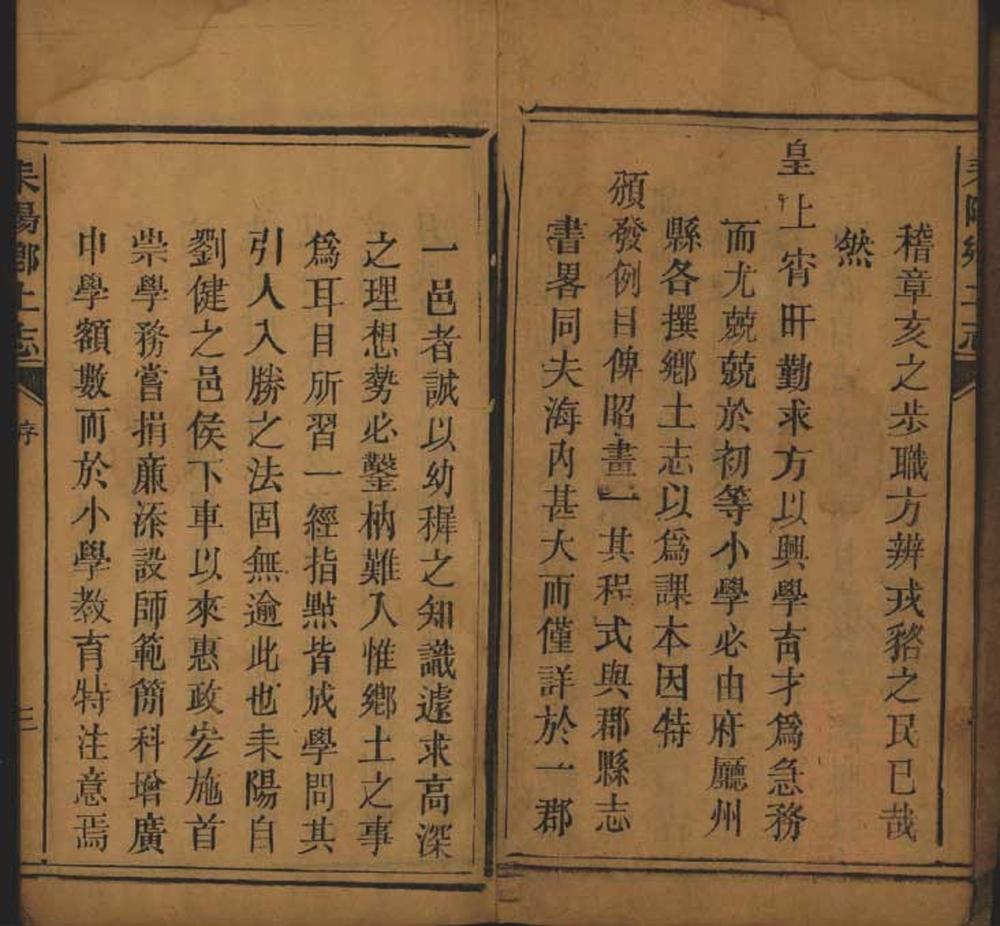 耒陽鄉土志
稽章亥之步職方辨戎貉之民已哉
然
皇上宵旰勤求方以興學育才爲急務
而尤兢兢於初等小學必由府廳州
縣各撰鄉土志以爲課本因特
頒發例目俾昭畫一其程式與郡縣志
書畧同夫海內甚大而僅詳於一郡
一邑者誠以幼穉之知識遽求高深
之理想勢必鑿枘難入惟鄉土之事
爲耳目所習一經指點皆成學問其
引人入勝之法固無逾此也耒陽自
劉健之邑侯下車以來惠政宏施首
崇學務嘗捐廉添設師範簡科增廣
申學額數而於小學敎育特注意焉
耒陽鄉土志
序
三